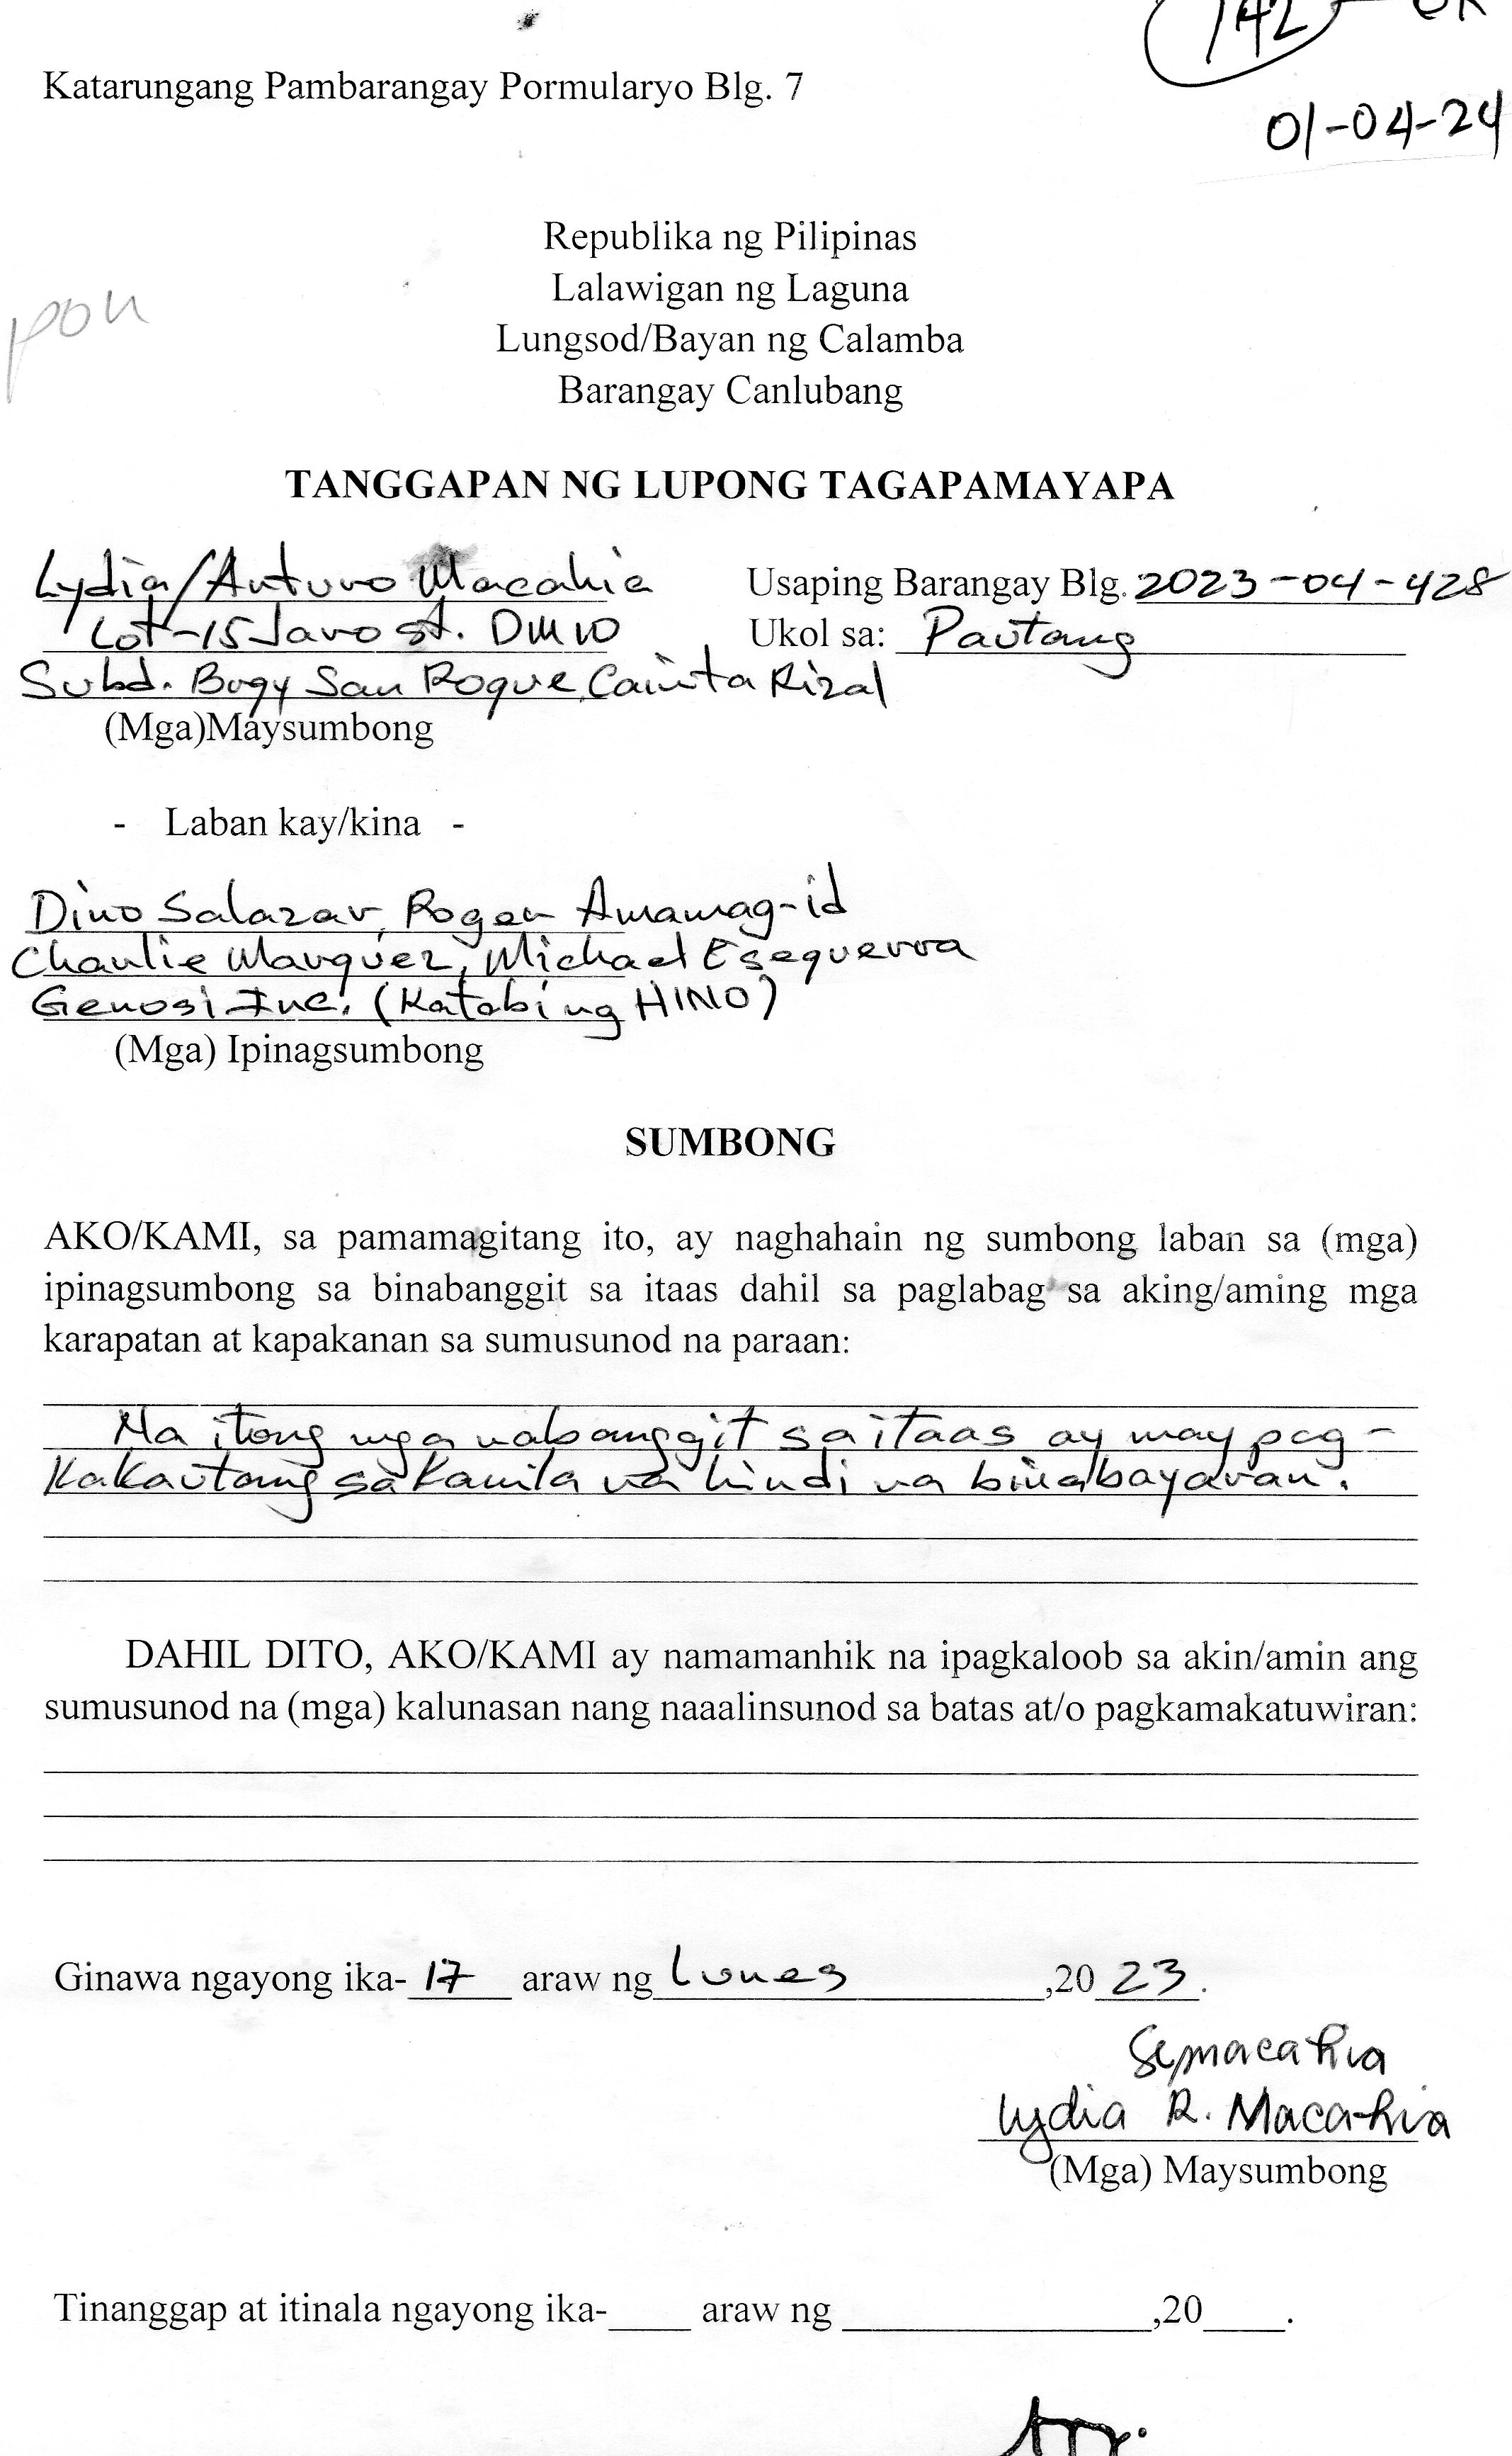 142 - OK
Katarungang Pambarangay Pormularyo Blg. 7
01-04-24
Republika ng Pilipinas
Lalawigan ng Laguna
pon
Lungsod/Bayan ng Calamba
Barangay Canlubang
TANGGAPAN NG LUPONG TAGAPAMAYAPA
Lydia/Arturo Macahia Usaping Barangay Blg. 2023-04-428
Lot-15 Javo st. DMW Ukol sa: Pautang
Subd. Bogy San Roque, Cainta Rizal
(Mga)Maysumbong
- Laban kay/kina -
Dino Salazar, Roger Amamag-id
Charlie Marquez, Michael Eseguerra
Genosi Inc. (Katabi ng HINO)
(Mga) Ipinagsumbong
SUMBONG
AKO/KAMI, sa pamamagitang ito, ay naghahain ng sumbong laban sa (mga)
ipinagsumbong sa binabanggit sa itaas dahil sa paglabag sa aking/aming mga
karapatan at kapakanan sa sumusunod na paraan:
Na itong mga nabanggit sa itaas ay may pag-
kakautang sa kanila na hindi na binabayaran.
DAHIL DITO, AKO/KAMI ay namamanhik na ipagkaloob sa akin/amin ang
sumusunod na (mga) kalunasan nang naaalinsunod sa batas at/o pagkamakatuwiran:
Ginawa ngayong ika- 17 araw ng Lunes ,20 23.
Lydia R. Macahia
(Mga) Maysumbong
Tinanggap at itinala ngayong ika-____ araw ng ______________,20____.